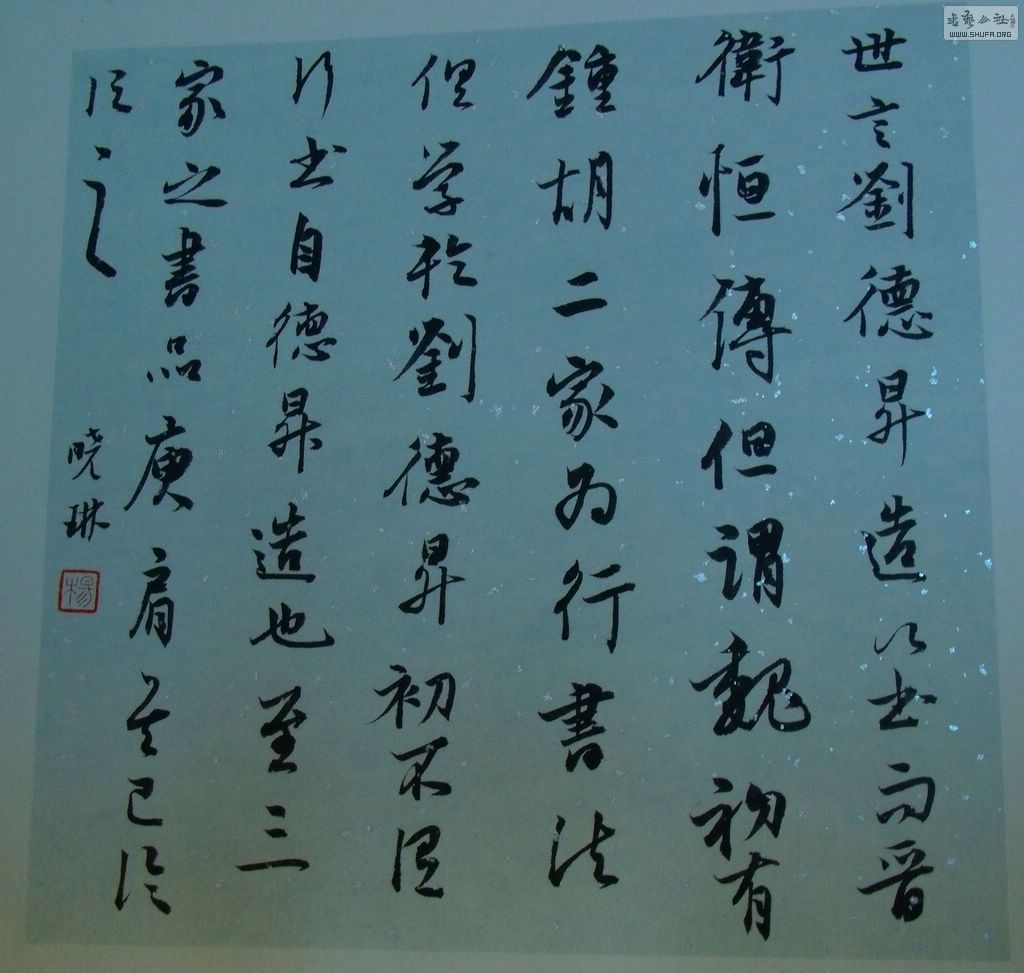 世言劉德昇造行书而晋
衛恒傳但謂魏初有
鍾胡二家为行書法
俱学於劉德昇初不谓
行书自德昇造也至三
家之書品庾肩吾已论
之
晓琳
楊
书艺公社
WWW.SHUFA.ORG